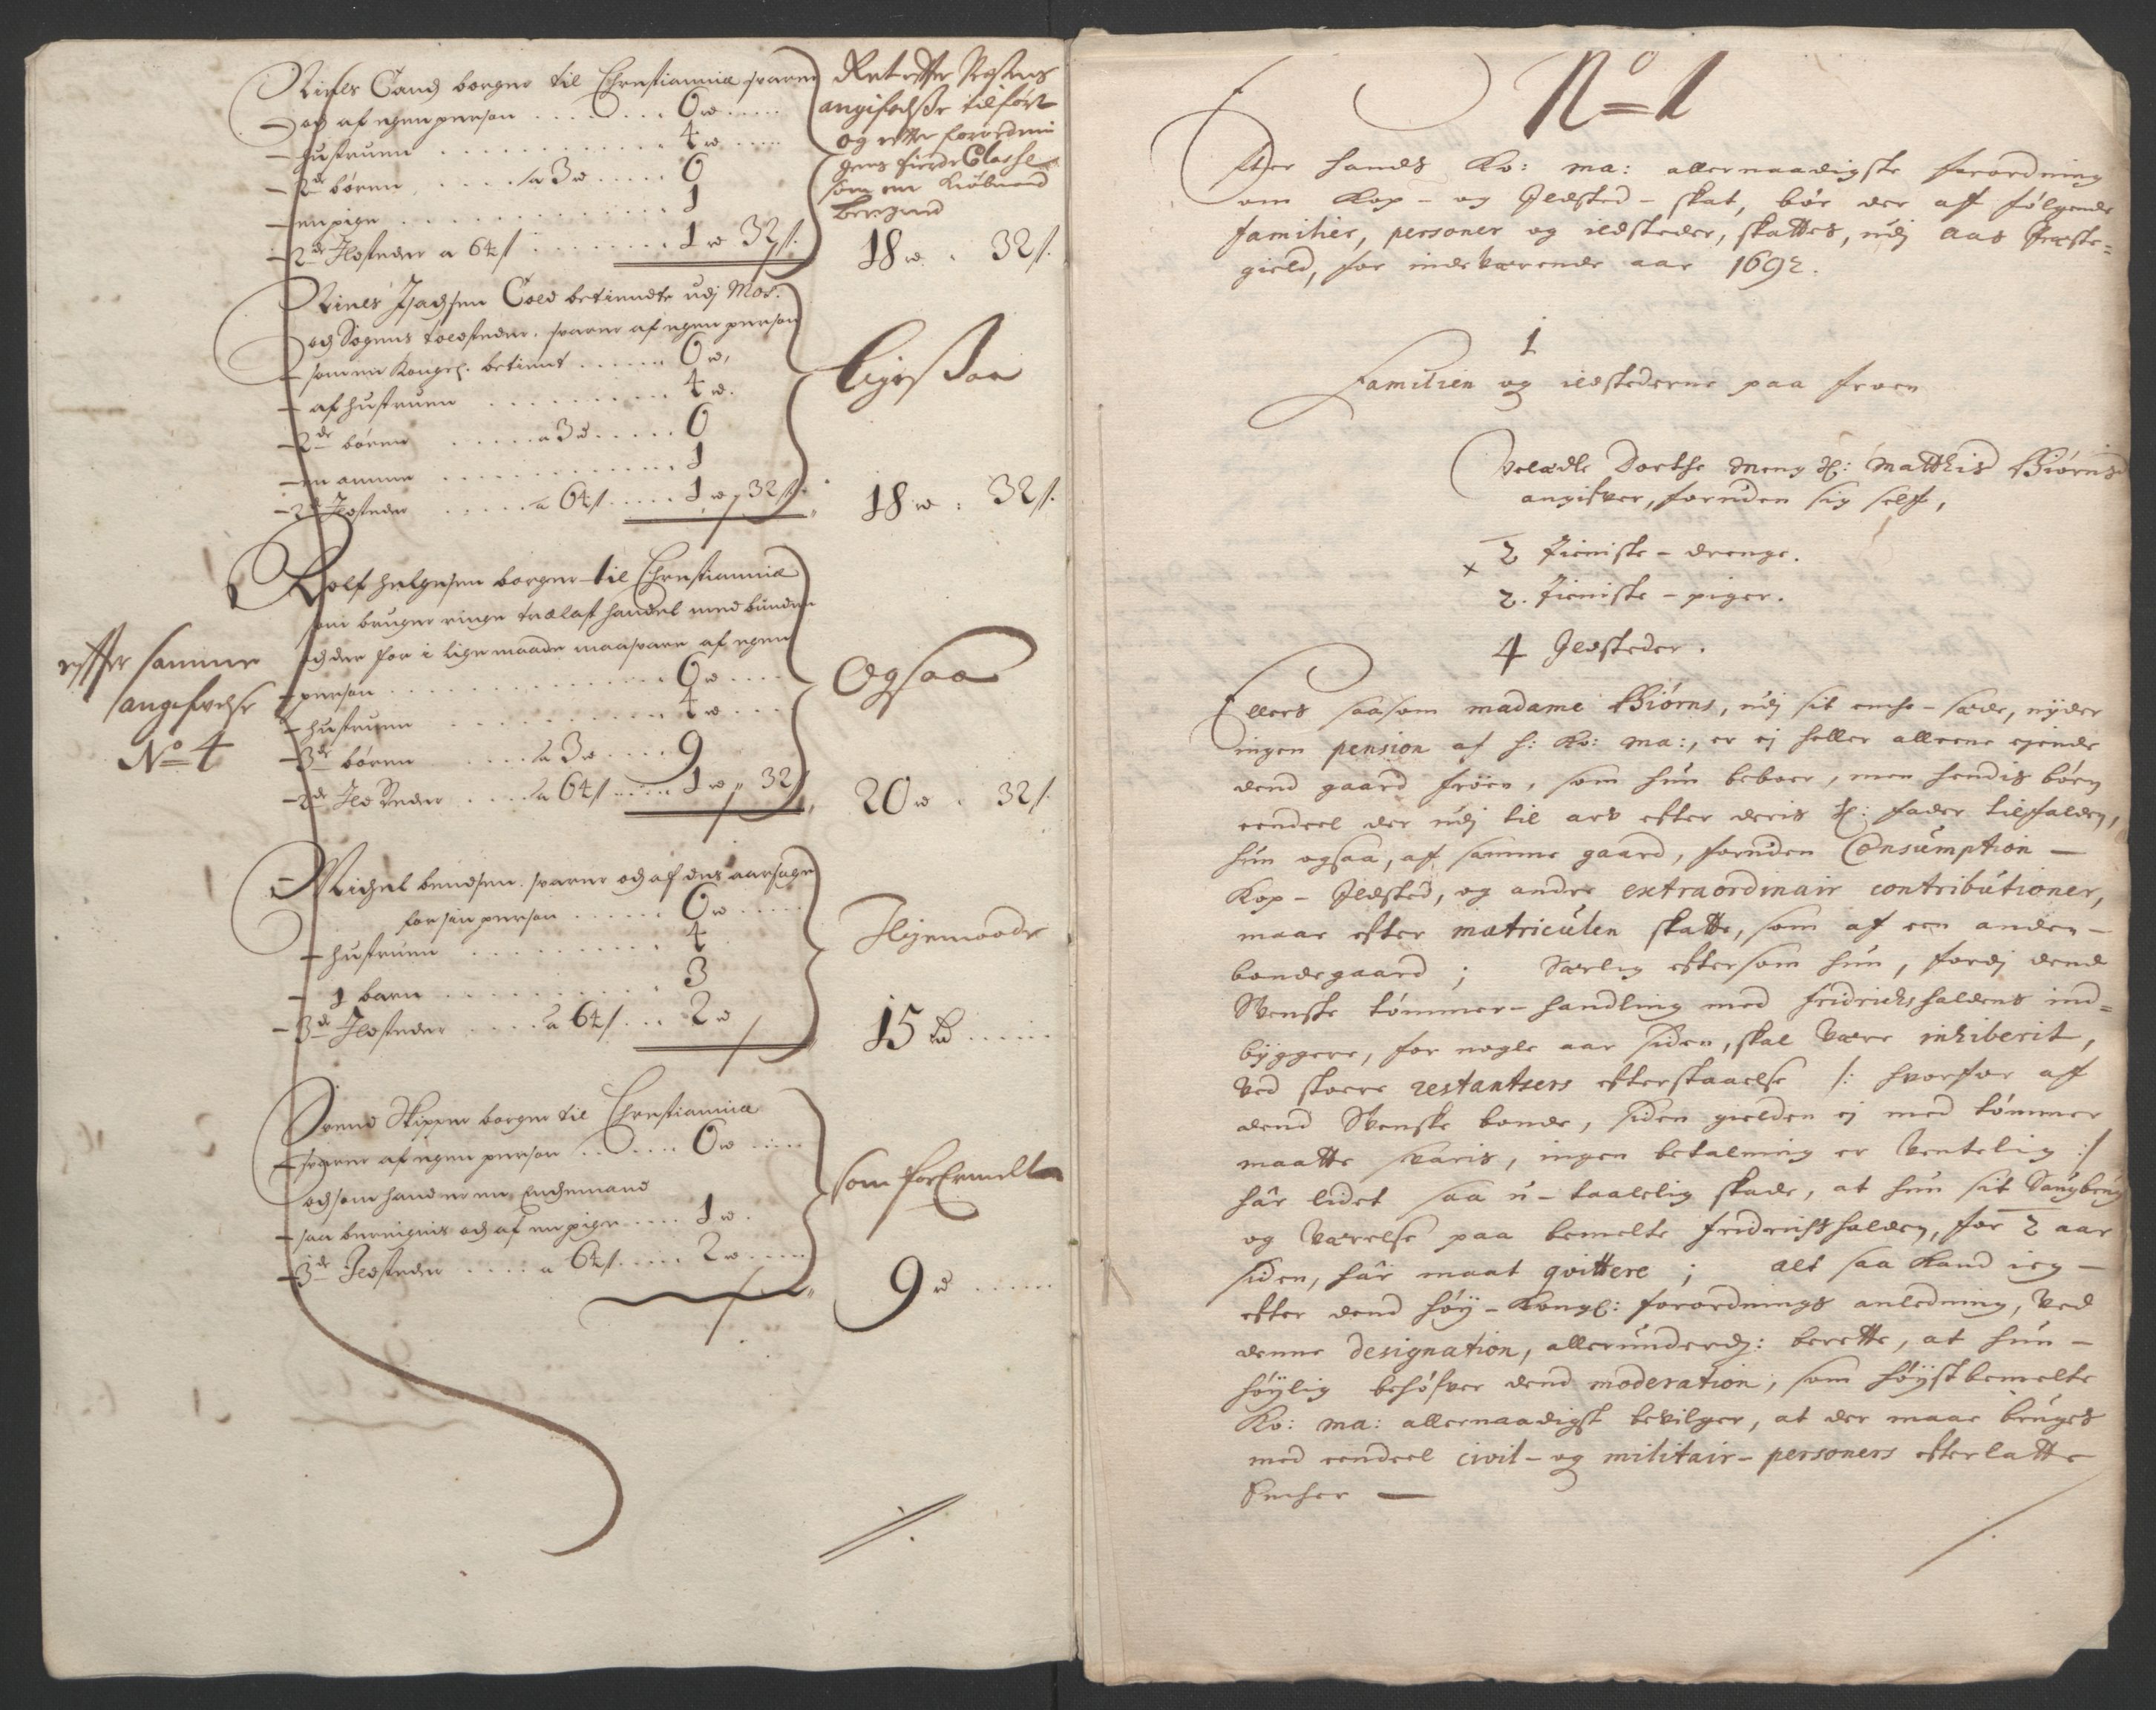 Niels Tand borger til Christiannia svarer
og af egen person . . . . . . . 6 rd . . . .
– hustruen . . . . . . . . . . . 4 rd . . . .
– 2de børen . . . . a 3 rd . . . . . 6
– en pige . . . . . . . . . . . . . 1
– 2de Ildsteder a 64 s . . . . . . . . 1 rd 32 s.
Ret efter Præstens
angifvelse tilført
og efter forordnin
gens fierde Classe
som en Kiøbmand
beregned
18 rd . 32 s.
Niels Isachsen Told betiendte udj Mos.
og Sognes toldsteder, svarer af egen person
– som en Kongel. betient . . . . . . 6 rd,
– af hustruen . . . . . . . . . . 4 rd.
– 2de børen . . . . . a 3 rd . . . . . 6
– en amme . . . . . . . . . . . . 1
– 2de Ildsteder . . . . . a 64 s . . . . . 1 rd „ 32 s.
ligesaa
18 rd : 32 s.
Rolf helgesen borger til Christiannia
som bruger ringe trælast handel med bunden
og der for i lige maade maa svare af egen
– person . . . . . . . . . . . . . . 6 rd . . . .
– hustruen . . . . . . . . . . . 4 rd . . .
– 3de børen . . . . a 3 rd . . . . 9
– 2de Ildsteder . . . . a 64 s . . . . . 1 rd „ 32 s
efter samme
angifvelse
No 4
Ogsaa
20 rd . 32 s.
Michel bendsen svarer og af des aarsage
for sin person . . . . . . 6 rd . . . . .
– hustruen . . . . . . . . . . 4
– 1 barn . . . . . . . . . . . 3
– 3de Ildsteder . . . . a 64 s . . . 2 rd
I ligemaade
15 rd . . . . . .
Svend Skipper borger til Christiannia
– svarer af egen person . . . . . . 6 rd . . . . .
og som hand er en Enchemand
– saa beregnis og af en pige . . . . 1 rd.
– 3de Ildsteder . . . . a 64 s . . . . . 2 rd . . . . .
som forErmelt
9 rd . . . . . .
No 1
Efter hands Ko: ma: allernaadigste forordning
om Kop – og Ildsted – skat, bør der aff følgende
familier, personer og ildsteder, skattes, udj Aas Præste=
gield, for indeværende aar 1692.
1
Familien og ildstederne paa Froen
Velædle Dorthe Meng Sl: Matthis Biørns
angifver, foruden sig self,
x 2 tieniste – drenge.
2. tieniste – piger.
4 Ildsteder.
Ellers saasom madame Biørns, udj sit enche – sæde, nyder
ingen pension af h: Ko: ma:, er ej heller alleene ejende
dend gaard frøen, som hun beboer, men hendis børn
eendeel der udj til arv efter deris Sl: fader tilfalden,
hun ogsaa, af samme gaard, foruden Consumption –
Kop – Ildsted, og andre extraordinair contributioner,
maae efter matriculen skatte, som af een anden –
bondegaard ; Særlig eftersom hun, fordj dend
Svenske tømmer – handling med fridrichshaldens ind=
byggere, for nogle aar siden, skal være inhiberit,
ved stoere restantsers efterstaaelse /: hvorfor aff
dend Svenske bonde, siden gielden ej med tømmer
maatte svaris, ingen betalning er ventelig :/
hâr lidet saa u – taalelig skade, at hun sit Saugbrug
og værelse paa bemelte Fridrichshalden, for 2 aar
siden, hâr maat qvittere ; alt saa kand ieg –
efter dend høy – Kongl: forordnings anledning, ved
denne designation, allerunderd: berette, at hun –
høylig behøfver dend moderation, som høystbemelte
Ko: ma: allernaadigst bevilger, at der maae bruges
med eendeel civil – og militair – personers efterlatte
Encher —